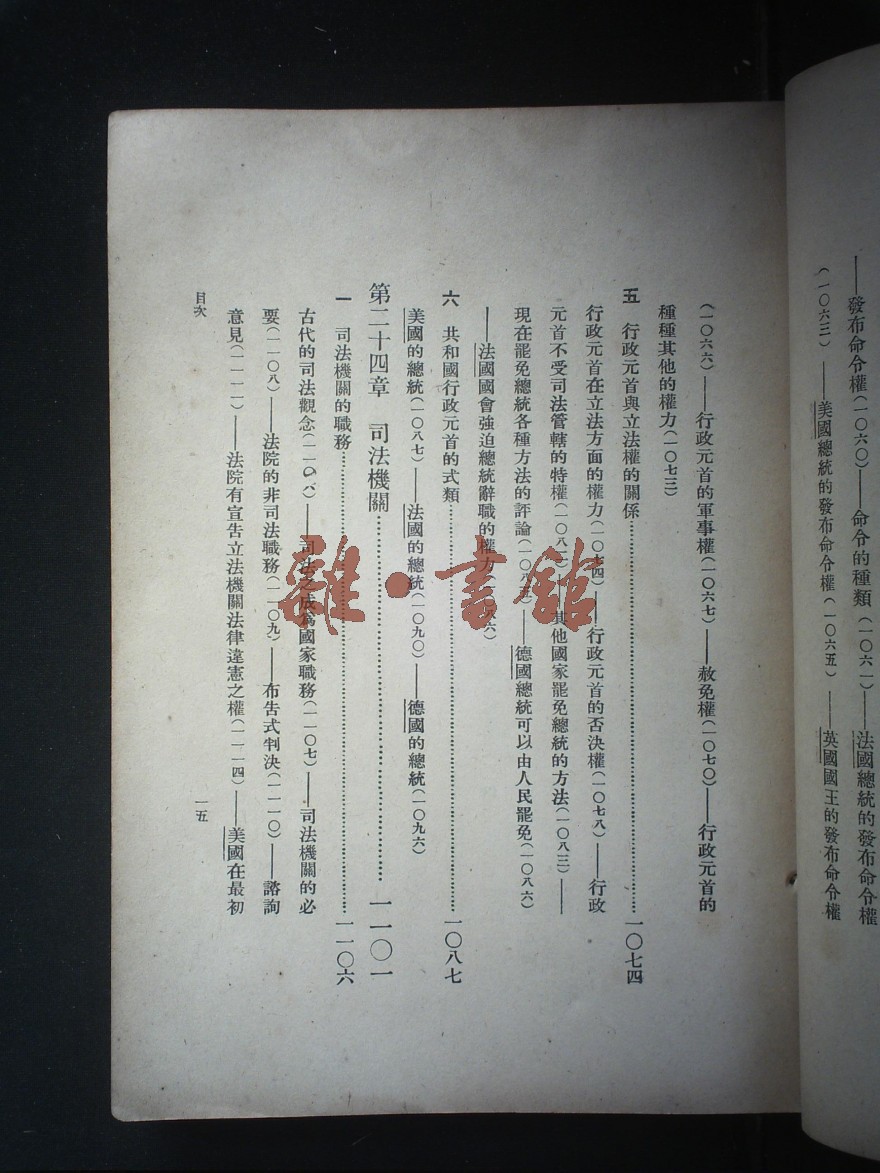 ——發布命令權(一〇六〇)——命令的種類(一〇六一)——法國總統的發布命令權
(一〇六三)——美國總統的發布命令權(一〇六五)——英國國王的發布命令權
(一〇六六)——行政元首的軍事權(一〇六七)——赦免權(一〇七〇)——行政元首的
種種其他的權力(一〇七三)
五 行政元首與立法權的關係……一〇七四
行政元首在立法方面的權力(一〇七四)——行政元首的否決權(一〇七八)——行政
元首不受司法管轄的特權(一〇八一)——其他國家罷免總統的方法(一〇八三)——
現在罷免總統各種方法的評論(一〇八五)——德國總統可以由人民罷免(一〇八六)
——法國國會強迫總統辭職的權力(一〇八六)
六 共和國行政元首的式類……一〇八七
美國的總統(一〇八七)——法國的總統(一〇九〇)——德國的總統(一〇九六)
第二十四章 司法機關……一一〇一
一 司法機關的職務……一一〇六
古代的司法觀念(一一〇六)——司法之成為國家職務(一一〇七)——司法機關的必
要(一一〇八)——法院的非司法職務(一一〇九)——布告式判決(一一一〇)——諮詢
意見(一一一一)——法院有宣告立法機關法律違憲之權(一一一四)——美國在最初
目次
一五
雜·書館